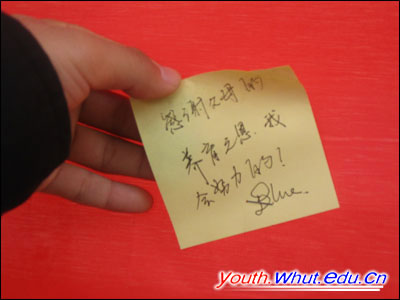 感谢父母的
养育之恩.我
会努力的!
Blue.
Youth.Whut.edu.Cn